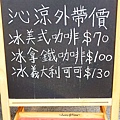 沁涼外帶價
冰美式咖啡$70
冰拿鐵咖啡$100
冰義大利可可$130